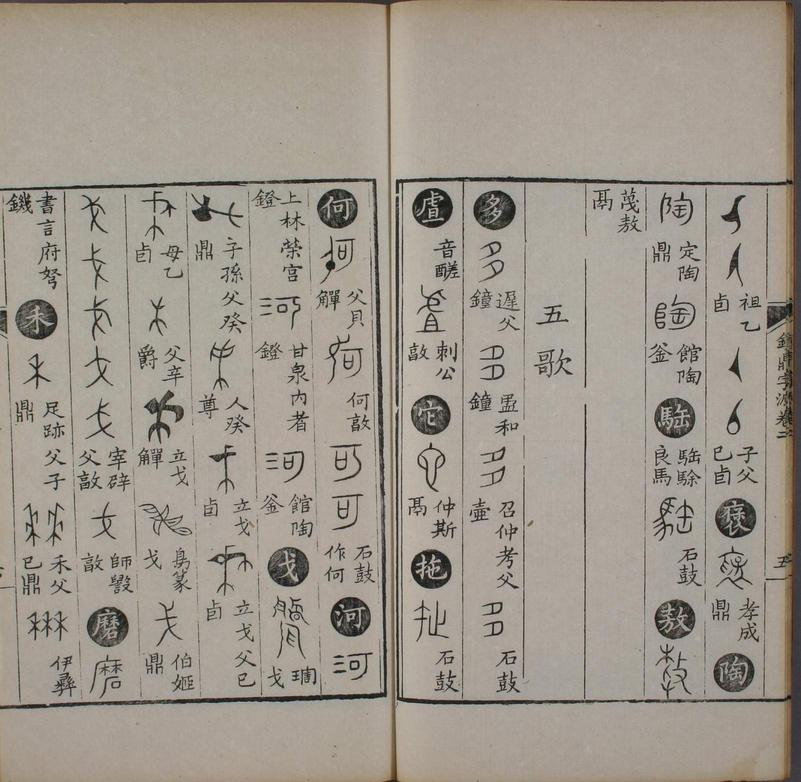 祖乙卣 子父已卣 褒 孝成鼎 陶
定陶鼎 館陶釜 駋 良馬 石鼓 敖
蔑敖鬲
五歌
多 遲父鐘 盄和鐘 召仲考父壺 石鼓
虘 音醝 刺公敦 它 仲斯鬲 拖 石鼓
何 父貝觶 何敦 石鼓作何 河
上林榮宮鐙 甘泉内者鐙 館陶釜 戈 琱戈
子孫父癸鼎 人癸尊 立戈卣 立戈父已卣
母乙卣 父辛爵 立戈觶 鳥篆戈 伯姬鼎
宰辟父敦 師㝨敦 磨
書言府弩鐖 禾 足跡父子鼎 禾父已鼎 伊彝
鐘鼎字源卷二 五